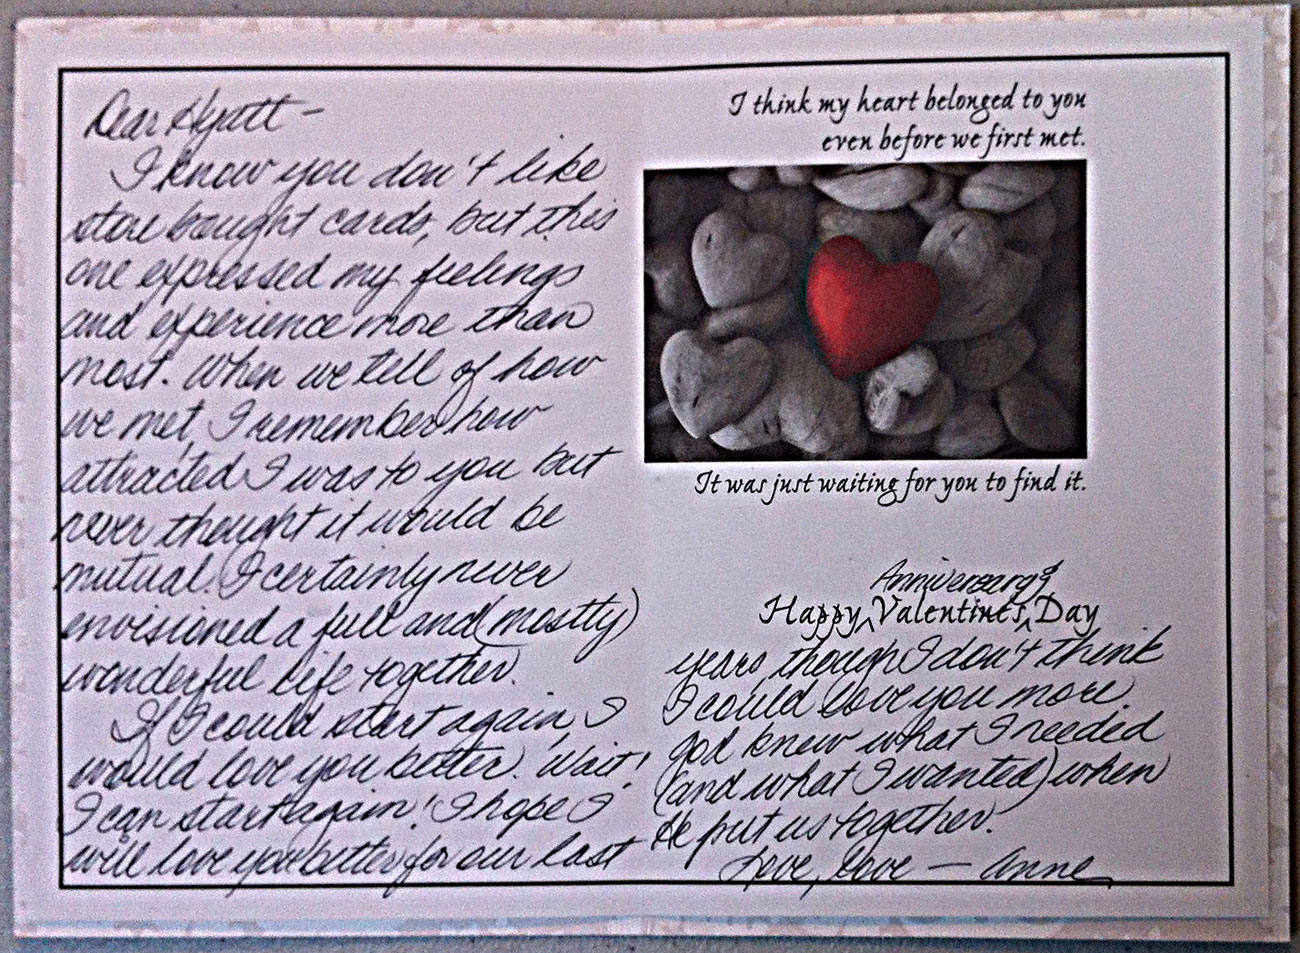 Dear Hyatt –
I know you don't like
store bought cards, but this
one expressed my feelings
and experience more than
most. When we tell of how
we met, I remember how
attracted I was to you but
never thought it would be
mutual. I certainly never
envisioned a full and (mostly)
wonderful life together.
If I could start again, I
would love you better. Wait!
I can start again! I hope I
will love you better for our last
I think my heart belonged to you
even before we first met.
It was just waiting for you to find it.
Anniversary &
Happy Valentine's Day
years, though I don't think
I could love you more.
God knew what I needed
(and what I wanted) when
He put us together.
Love, Love — Anne